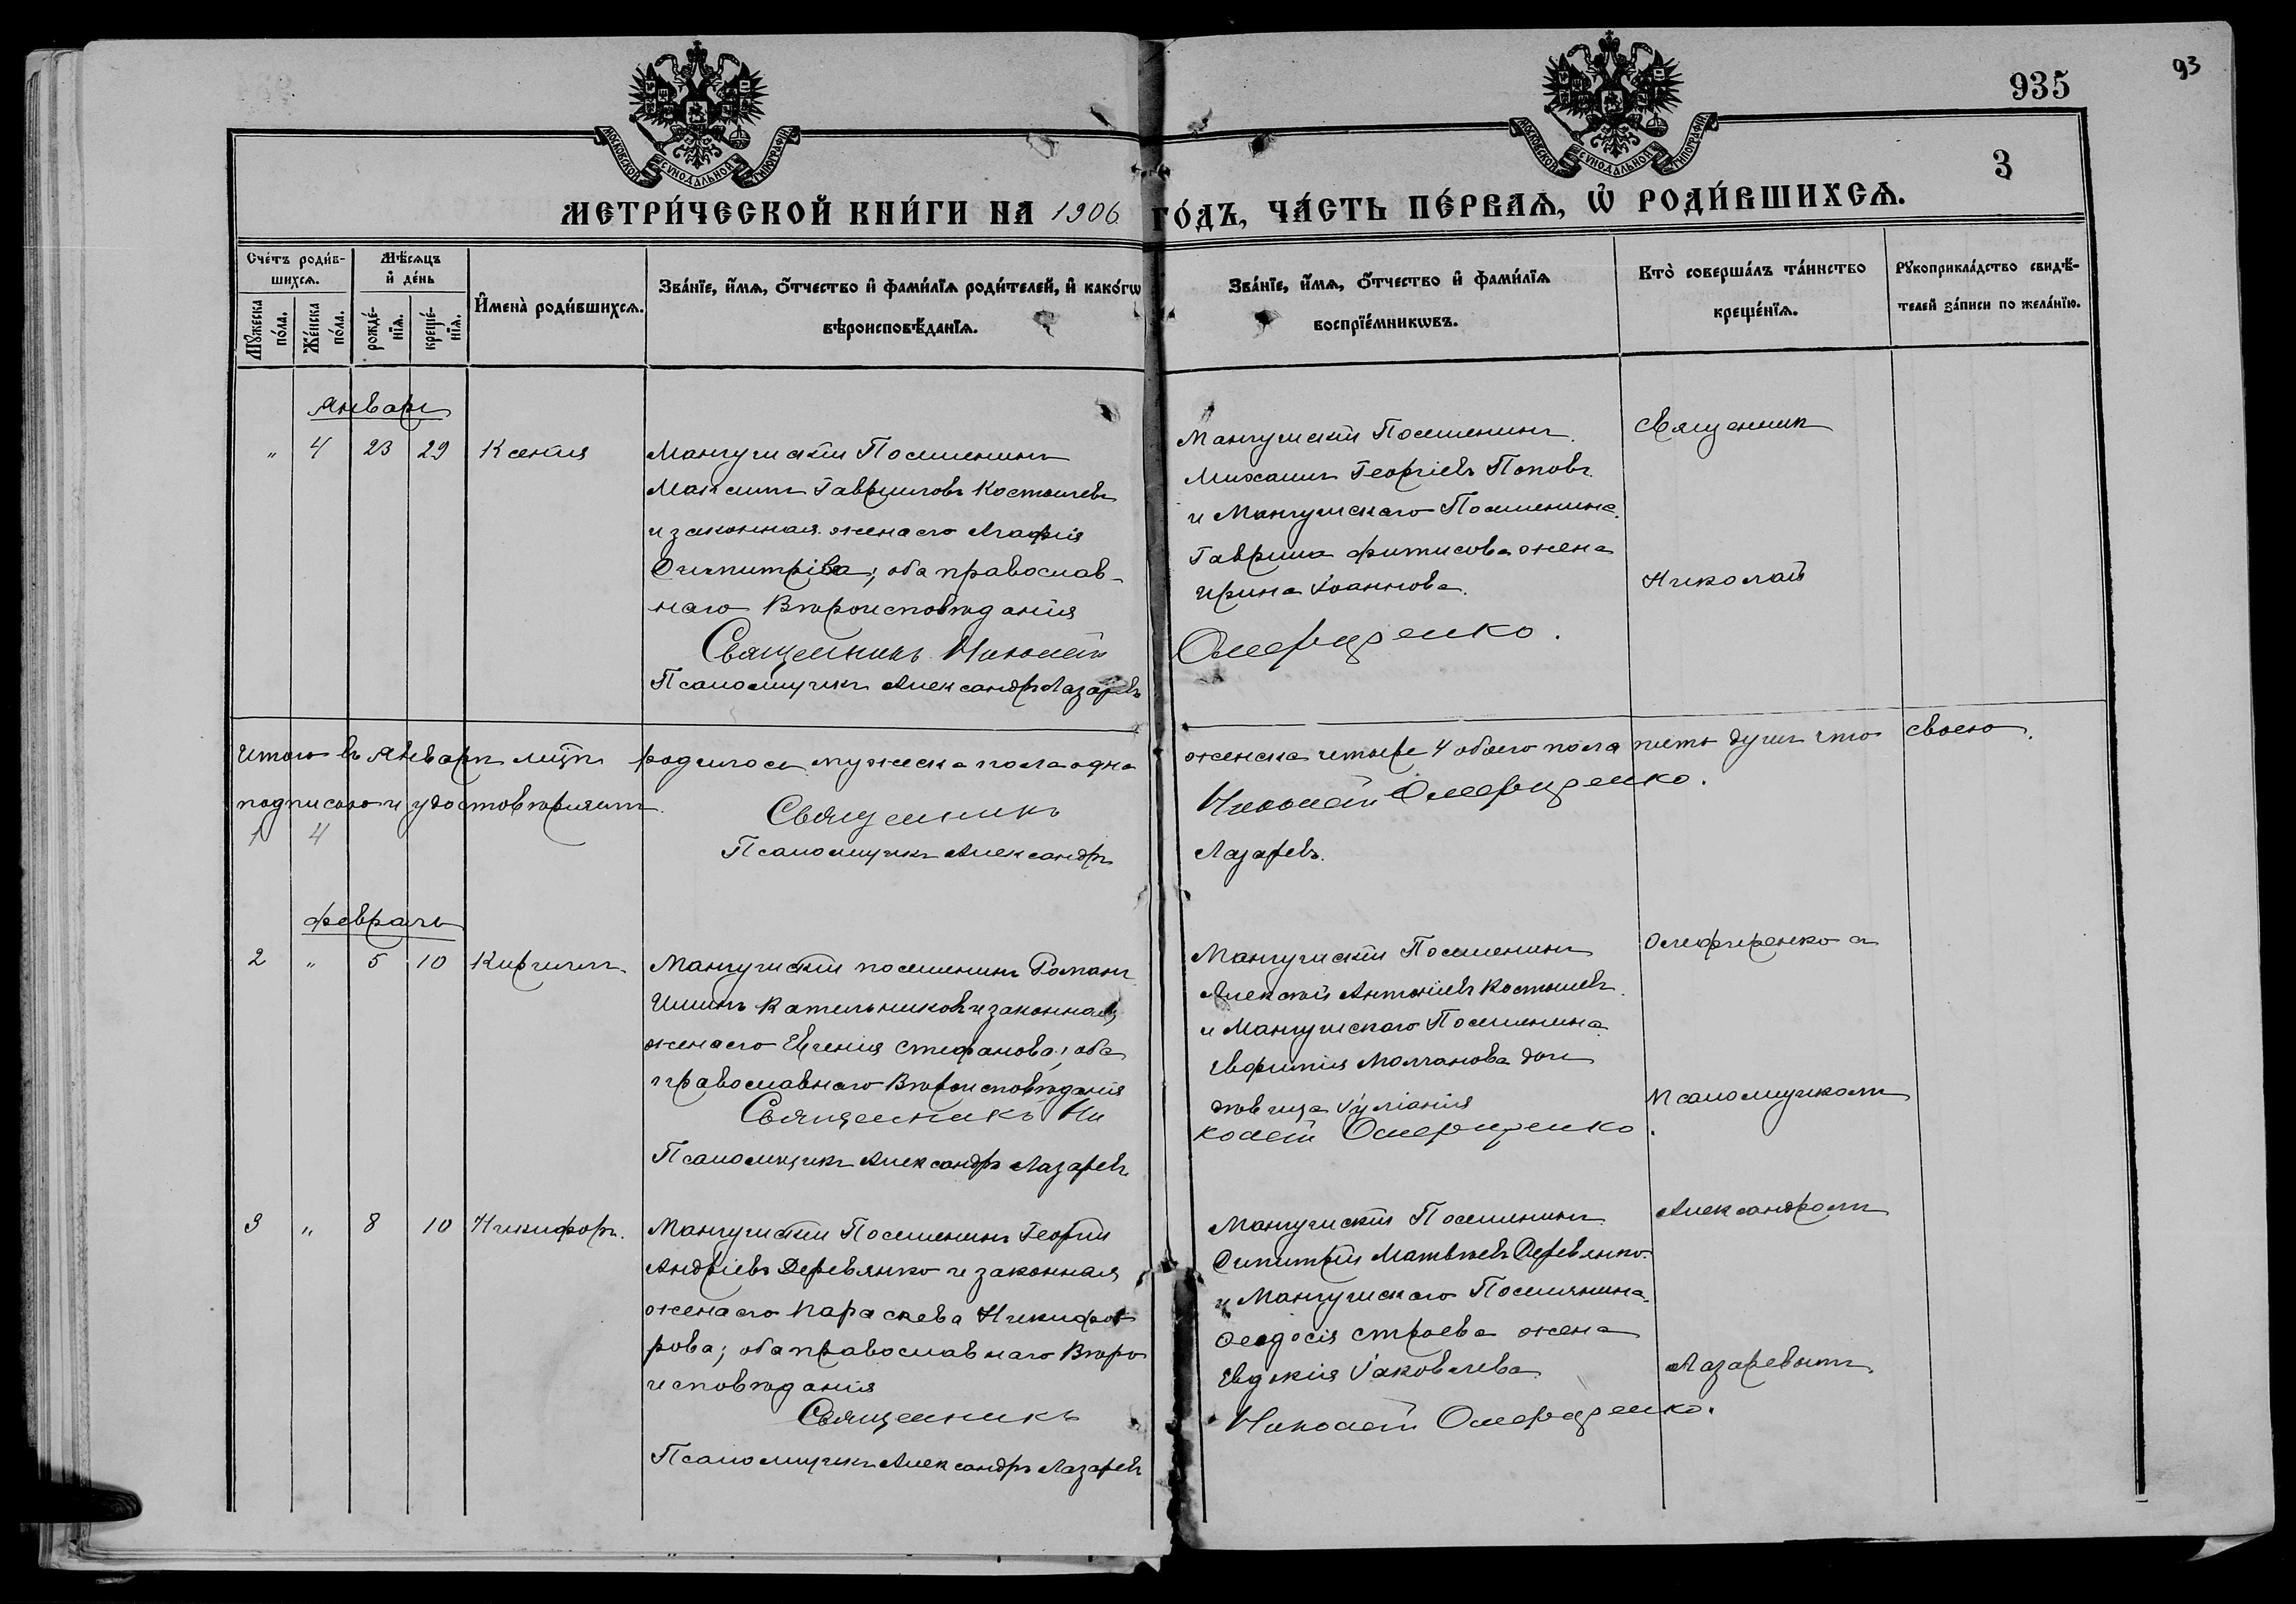 93
935
3
МОСКОВСКОЙ СУНОДАЛЬНОЙ ТИПОГРАФІИ
МОСКОВСКОЙ СУНОДАЛЬНОЙ ТИПОГРАФІИ
МЕТРИ́ЧЕСКОЙ КНИ́ГИ НА 1906 ГО́ДЪ, ЧА́СТЬ ПЕ́РВАЯ, Ѡ҆ РОДИ́ВШИХСѦ.
Сче́тъ роди́в-
шихсѧ.
Мꙋжеска по́ла.
Же́нска по́ла.
Мѣ́сѧцъ
и҆ де́нь
рожде́-
нїѧ.
креще́-
нїѧ.
И҆мена̀ роди́вшихсѧ.
Зва́нїе, и҆́мѧ, ѻ҆́тчество и҆ фами́лїѧ роди́телей, и҆ како́гѡ
вѣроисповѣ́данїѧ.
Зва́нїе, и҆́мѧ, ѻ҆́тчество и҆ фами́лїѧ
воспрїе́мникѡвъ.
Кто̀ соверша́лъ та́инство
креще́нїѧ.
Рꙋкоприкла́дство свидѣ́-
телей за́писи по жела́нїю.
Январь
" 4 23 29 Ксенія
Мангушскій Поселенинъ
Максимъ Гавриловъ Костылевъ
и законная жена его Агафія
Димитріева; оба православ-
наго Вѣроисповѣданія
Священникъ Николай
Псаломщикъ Александръ Лазаревъ
Мангушскій Поселенинъ
Михаилъ Георгіевъ Поповъ
и Мангушскаго Поселенина
Гаврила Фитисова жена
Ирина Іоаннова.
Олефиренко.
Священник
Николай
Итого въ Январѣ мцѣ родилось мужеска пола одна женска четыре 4 обоего пола пять душъ что своею
подписью и удостовѣряемъ
1 4
Священникъ Николай Олефиренко.
Псаломщикъ Александръ Лазаревъ.
Февраль
2 " 5 10 Кириллъ.
Мангушскій поселенинъ Романъ
Ильинъ Кательниковъ и законная
жена его Евгенія Стефанова; оба
православнаго Вѣроисповѣданія
Священникъ Ни
Псаломщикъ Александръ Лазаревъ
Мангушскій Поселенинъ
Алексѣй Антоніевъ Костылевъ
и Мангушскаго Поселенина
Евфимія Молчанова дочь
дѣвица Іуліанія
колай Олефиренко.
Олефиренко съ
Псаломщикомъ
3 " 8 10 Никифоръ.
Мангушскій Поселенинъ Георгій
Андріевъ Деревянко и законная
жена его Параскева Никифо-
рова; оба православнаго Вѣро
исповѣданія
Священникъ
Псаломщикъ Александръ Лазаревъ
Мангушскій Поселенинъ
Димитрій Матвѣевъ Деревянко
и Мангушскаго Поселянина
Феодосія Строева жена
Евдокія Іаковлева
Николай Олефиренко.
Александромъ
Лазаревымъ